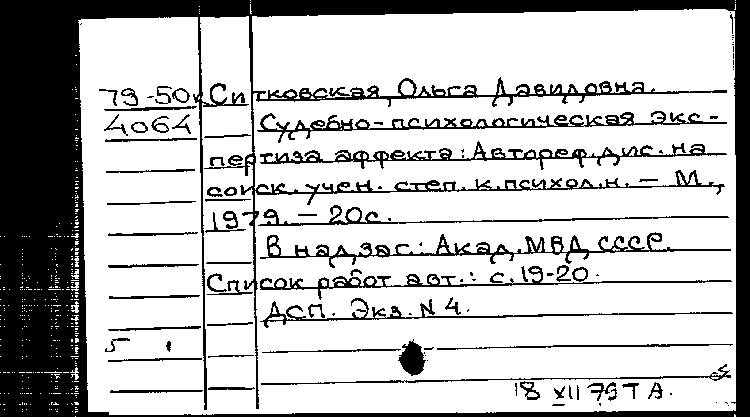 79-50к Ситковская, Ольга Давидовна.
4064 Судебно-психологическая экс-
пертиза аффекта: Автореф. дис. на
соиск. учен. степ. к. психол. н. – М.,
1979. – 20с.
В надзаг.: Акад. МВД СССР.
Список работ авт.: с. 19-20.
ДСП. Экз. N 4.
5 1
18 XII 79 Т А.